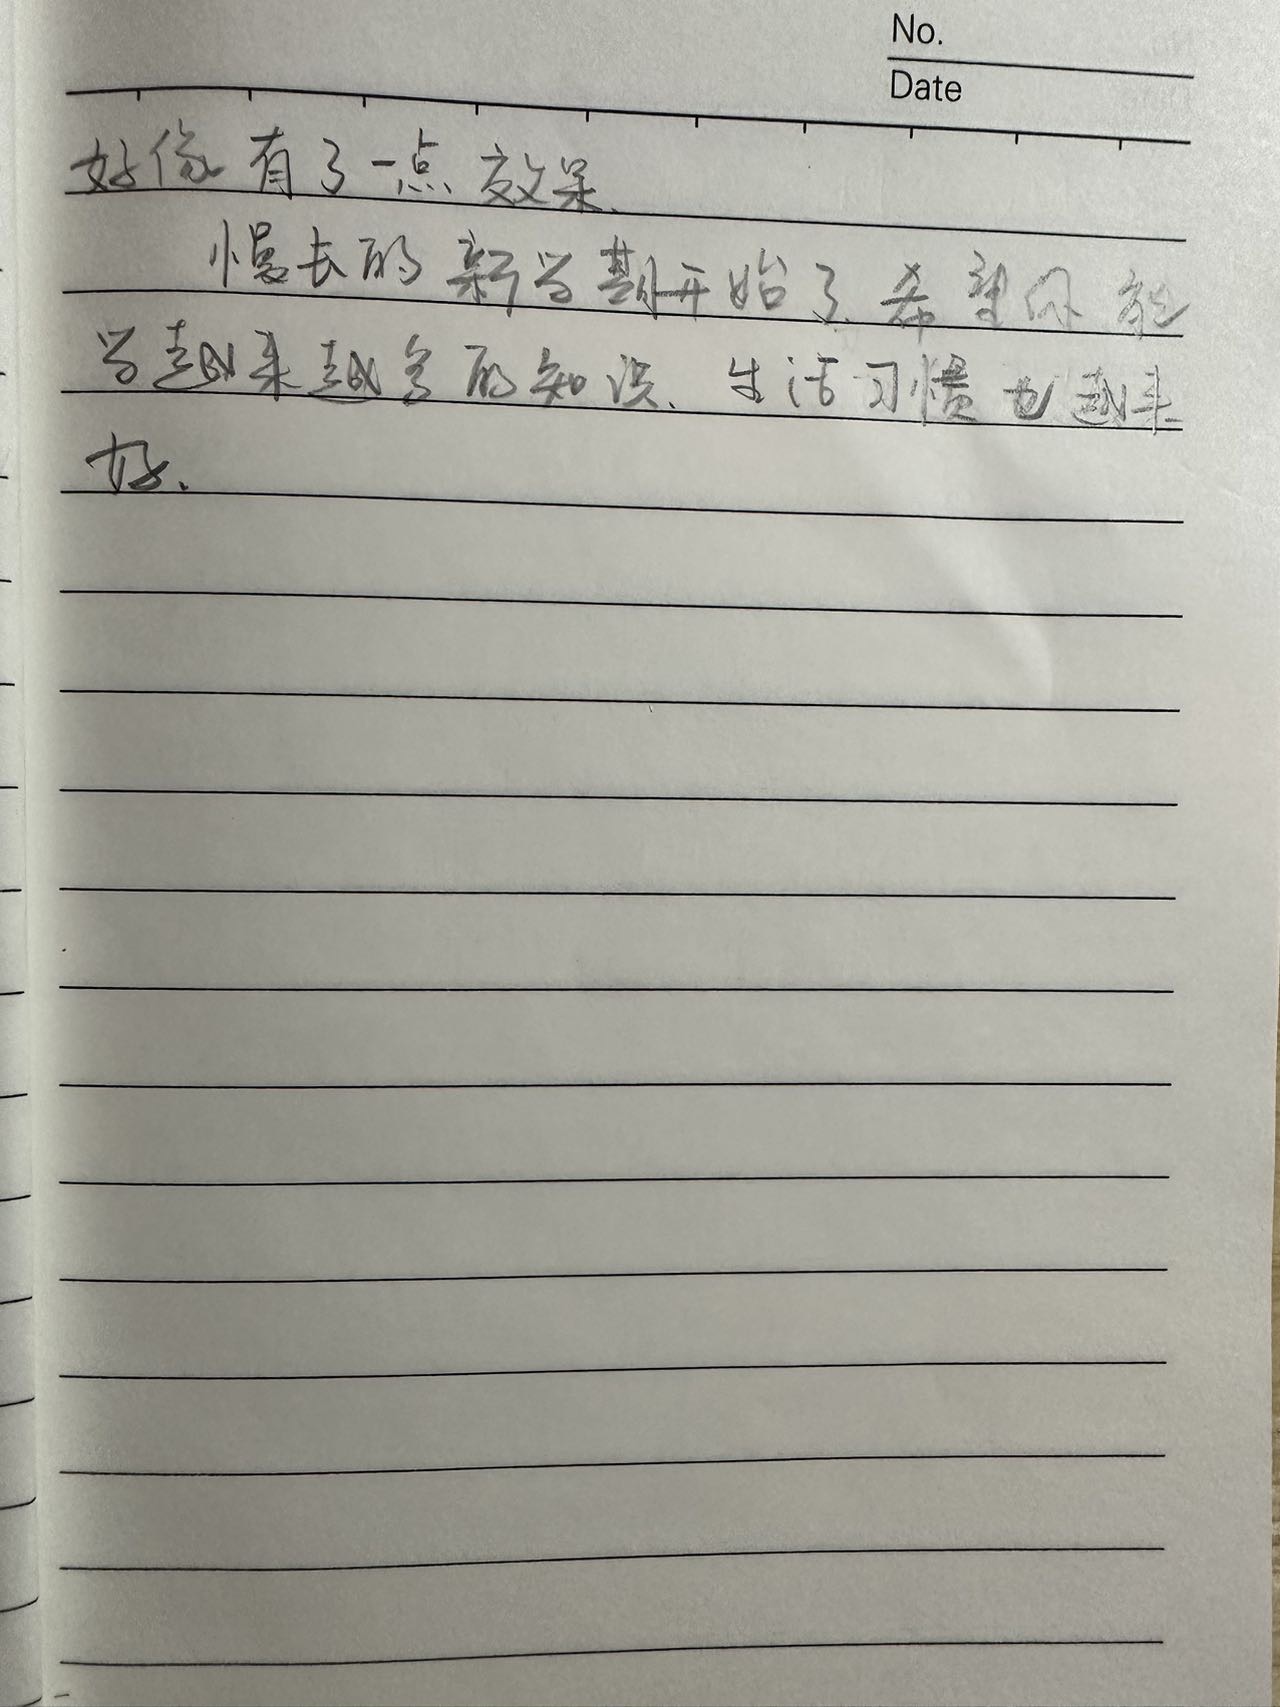 No.
Date
好像有了一点效果、
慢长的新学期开始了、希望你能
学越来越多的知识、生活习惯也越来
好、